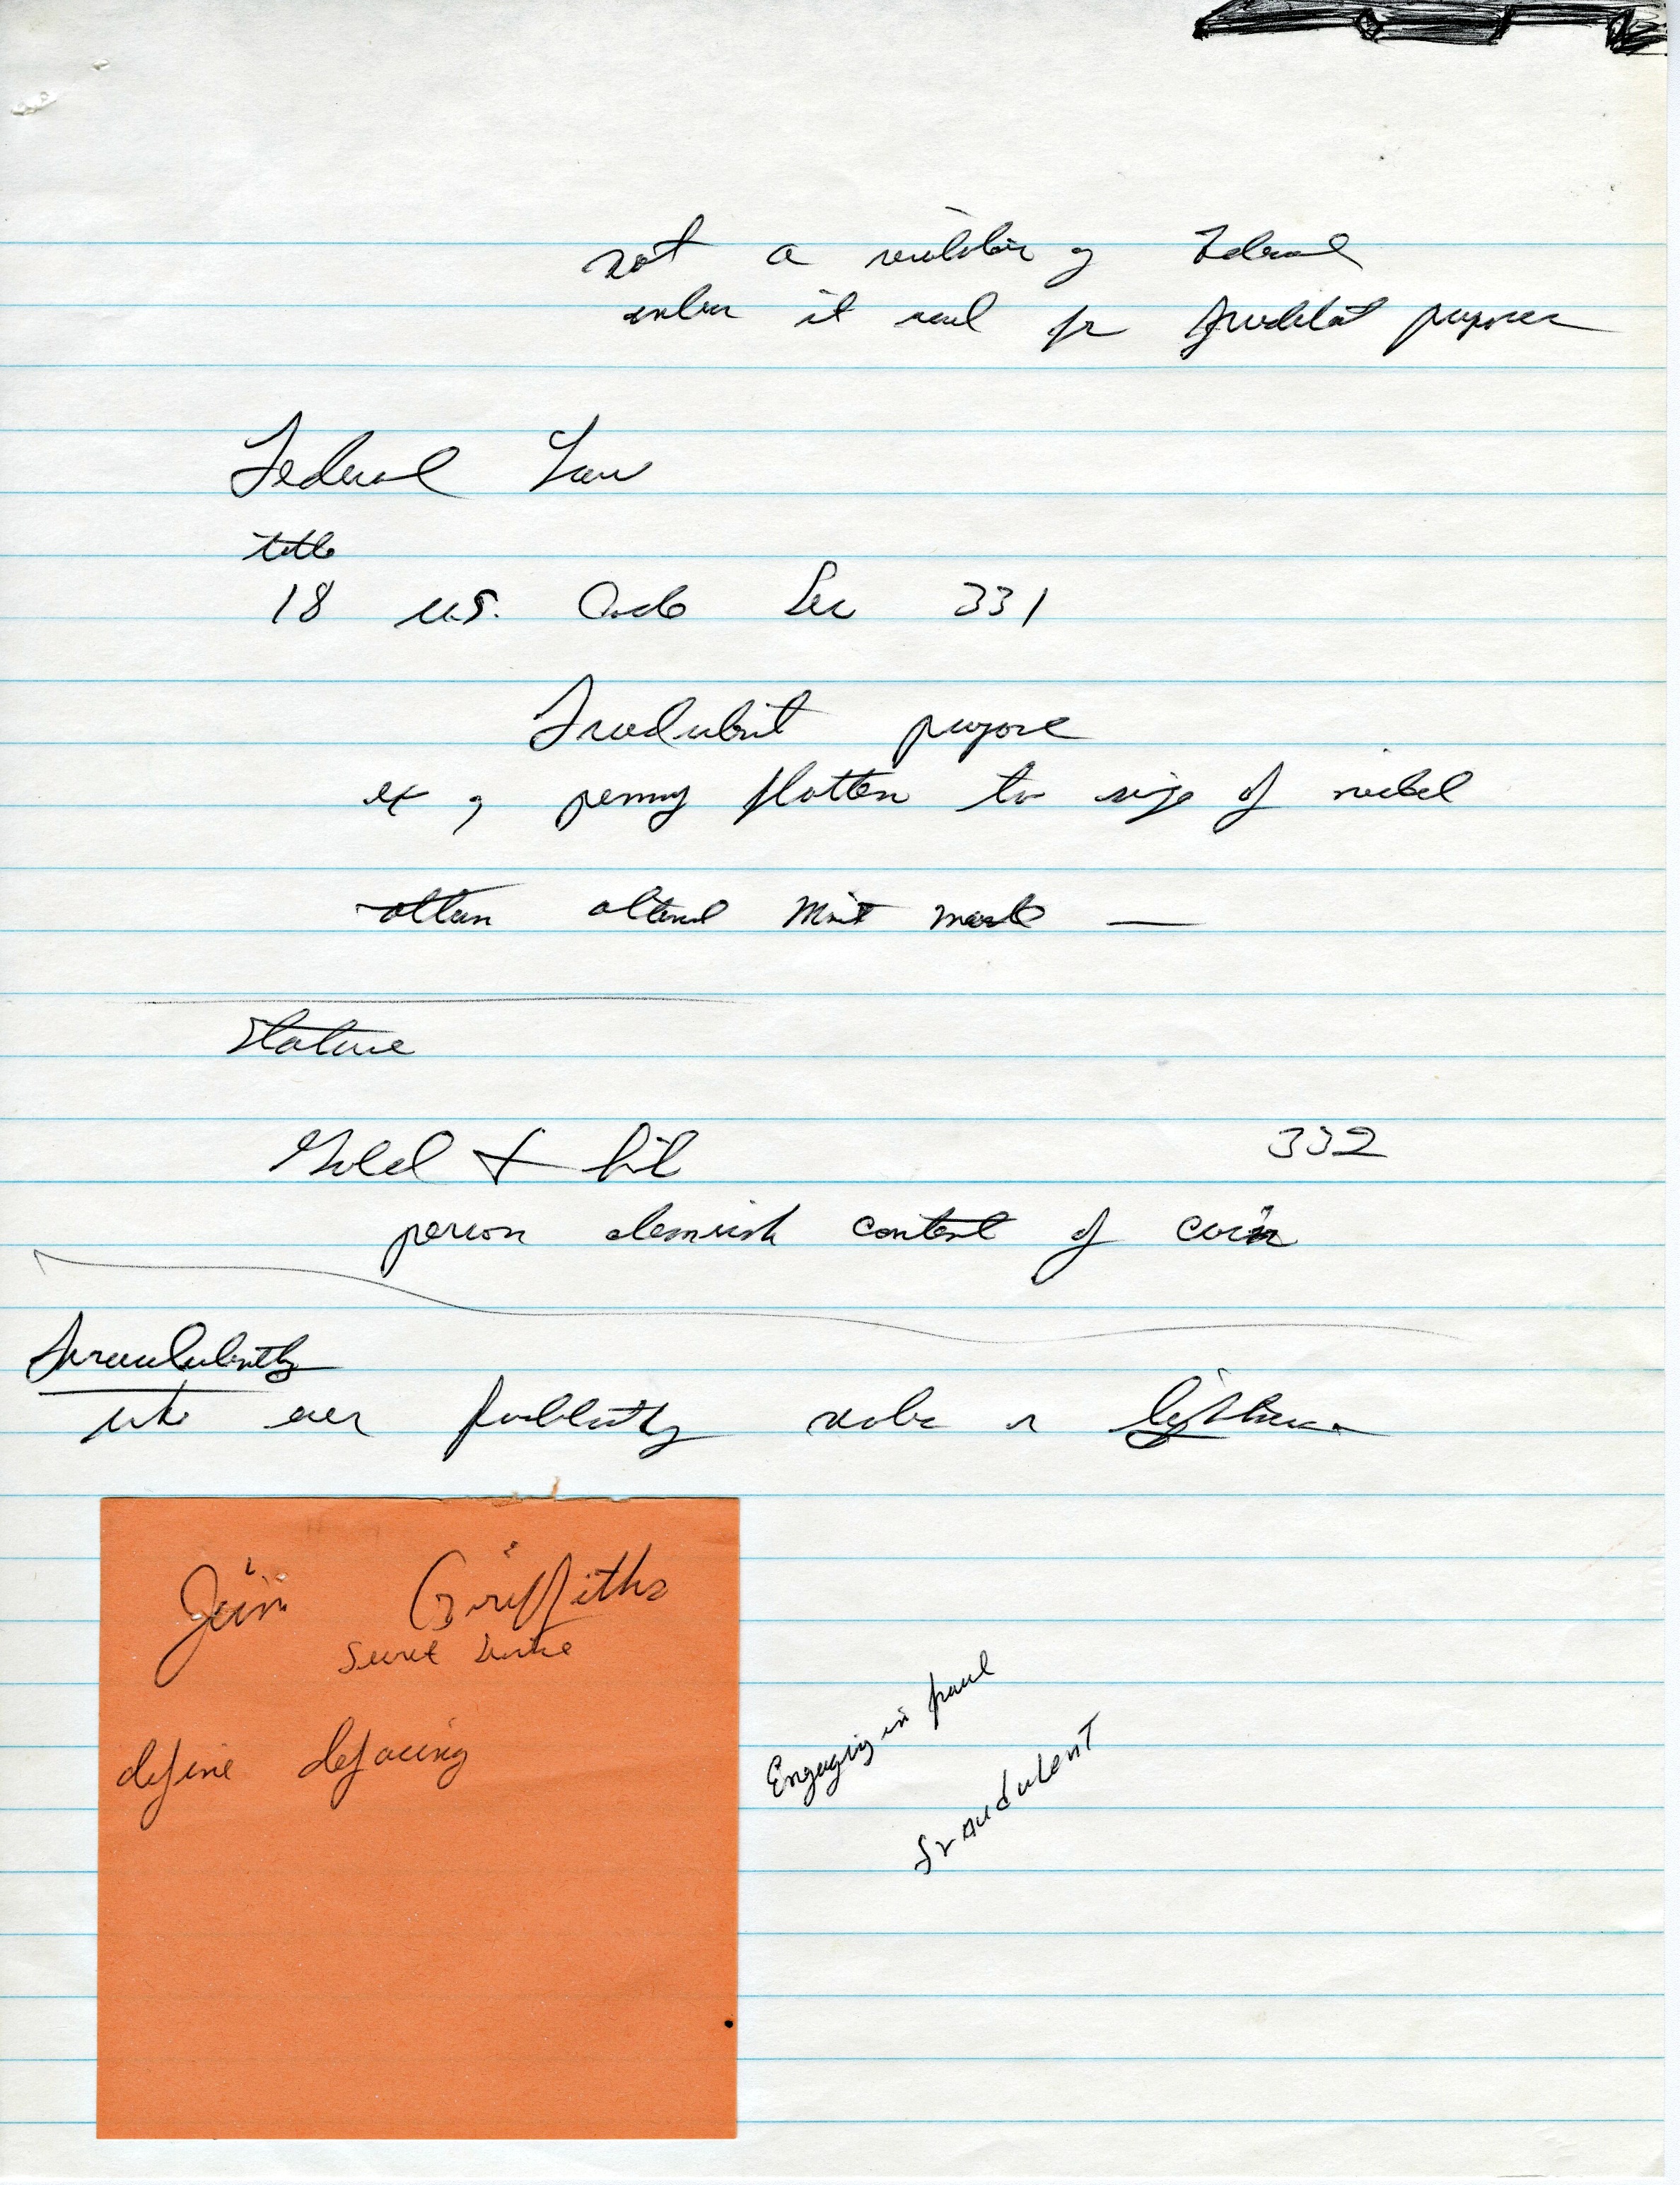 not a violation of Federal
unless it used for fraudulent purposes
Federal Law
title
18 U.S. Code Sec 331
Fraudulent purpose
ex, penny flatten to size of nickel
often altered mint mark —
Statue
Gold & Sil 332
person diminish content of coin
Fraudulently
who ever fraudulently or lightens
Jim Griffiths
Secret Service
define defacing
Engaging in fraud
fraudulent